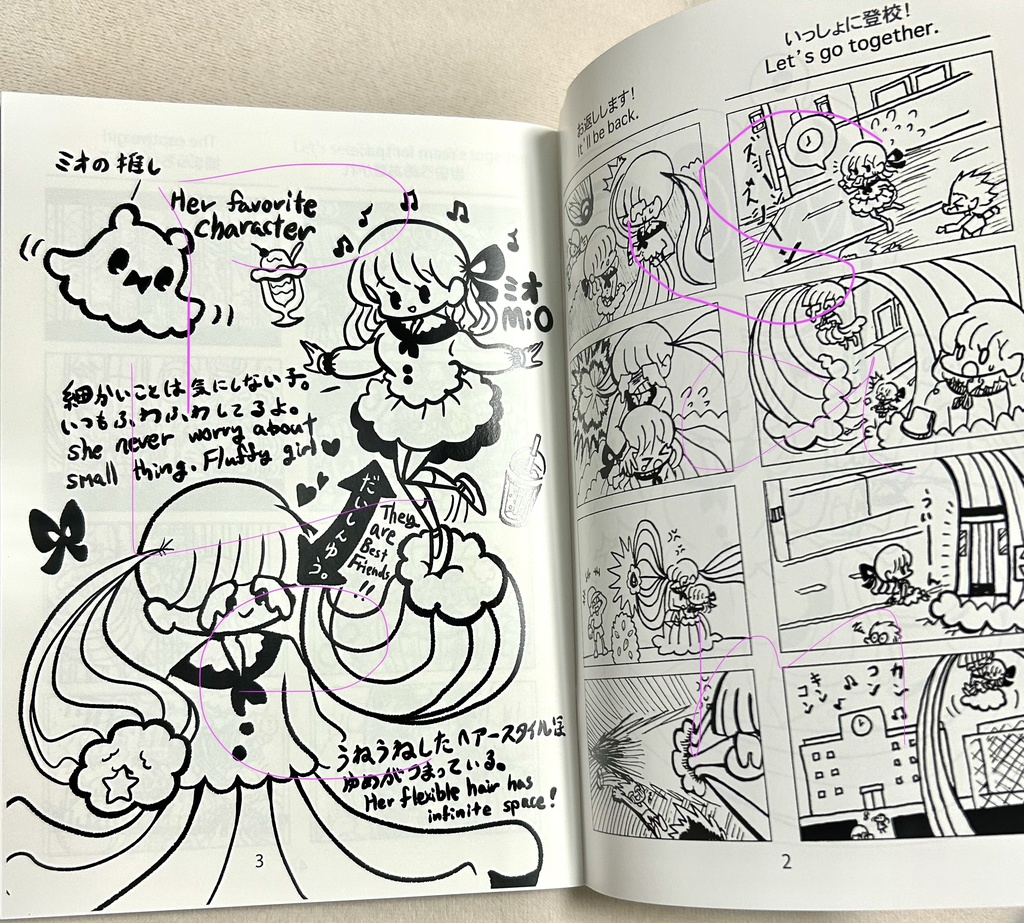 ミオの推し
Her favorite
character
ミオ
MiO
細かいことは気にしない子。
いつもふわふわしてるよ。
she never worry about
small thing. Fluffy girl
だいしんゆう。
They
are
Best
Friends
!!
うねうねしたヘアースタイルは
ゆめがつまっている。
Her flexible hair has
infinite space!
3
いっしょに登校!
Let's go together.
お返しします!
It'll be back.
うぃーーん
キーン
コン
カン
コン
2